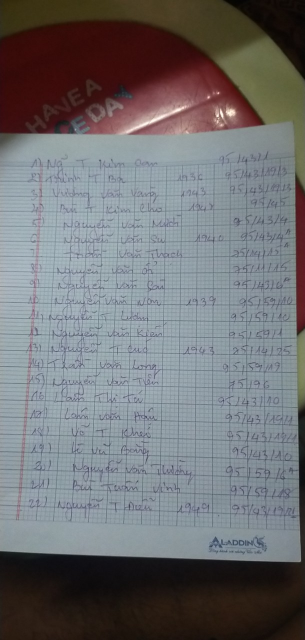 HAVE A
ICE DAY
1) Ngô T Kim Oan 95/43/1
2) Trịnh T Ba 1936 95/43/19/3
3) Vương Văn Vang 1943 95/43/19/13
4) Bùi T Kim Chu 1948 95/45
5) Nguyễn Văn Minh 95/43/4
6 Nguyễn Văn Sự 1940 95/43/4A
Trần Văn Thạch
8) Nguyễn Văn Ổi 75/11/15
9) Nguyễn Văn Bài 95/43/6A
10 Nguyễn Văn Nam 1939 95/59/10
11) Nguyễn T Lượm 95/59/10
12 Nguyễn Văn Kiển 95/59/1
13) Nguyễn T Cúc 1943 75/14/25
14) Trần Văn Long 95/59/19
15) Nguyễn Văn Tiến 75/96
16 Trần Thị Tài 95/43/10
17) Lâm Văn Hân 95/43/19/1
18) Võ T Khéo 95/43/19/1
19) Lê Vũ Bằng 95/43/10
20) Nguyễn Văn Thưởng 95/59/4A
21) Bùi Tuấn Vinh 95/59/18
22) Nguyễn T Điểu 95/43/19/
ALADDIN